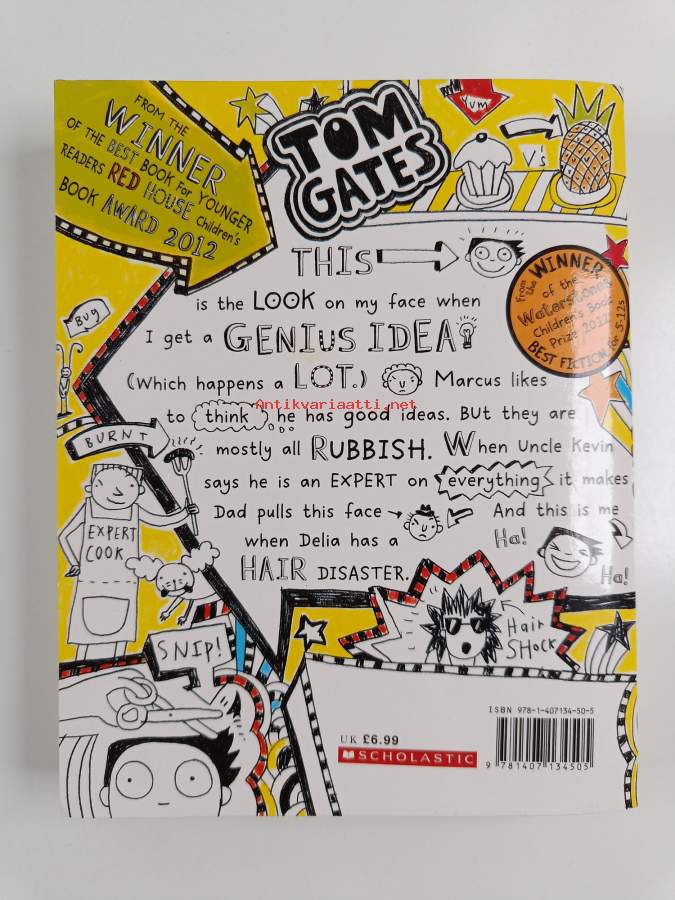 FROM THE
WINNER
OF THE BEST BOOK FOR YOUNGER
READERS RED HOUSE Children's
BOOK AWARD 2012
TOM
GATES
YUM
V's
THIS
is the LOOK on my face when
I get a GENIUS IDEA
(Which happens a LOT.) Marcus likes
to think he has good ideas. But they are
mostly all RUBBISH. When Uncle Kevin
says he is an EXPERT on everything it makes
Dad pulls this face And this is me
when Delia has a Ha!
HAIR DISASTER. Ha!
From the WINNER
of the
Waterstones
Children's Book
Prize 2012
BEST FICTION for 5-12s
BUG
BURNT
EXPERT
COOK
SNIP!
Hair
SHOCK
Antikvariaatti.net
ISBN 978-1-407134-50-5
UK £6.99
SCHOLASTIC
9 781407 134505